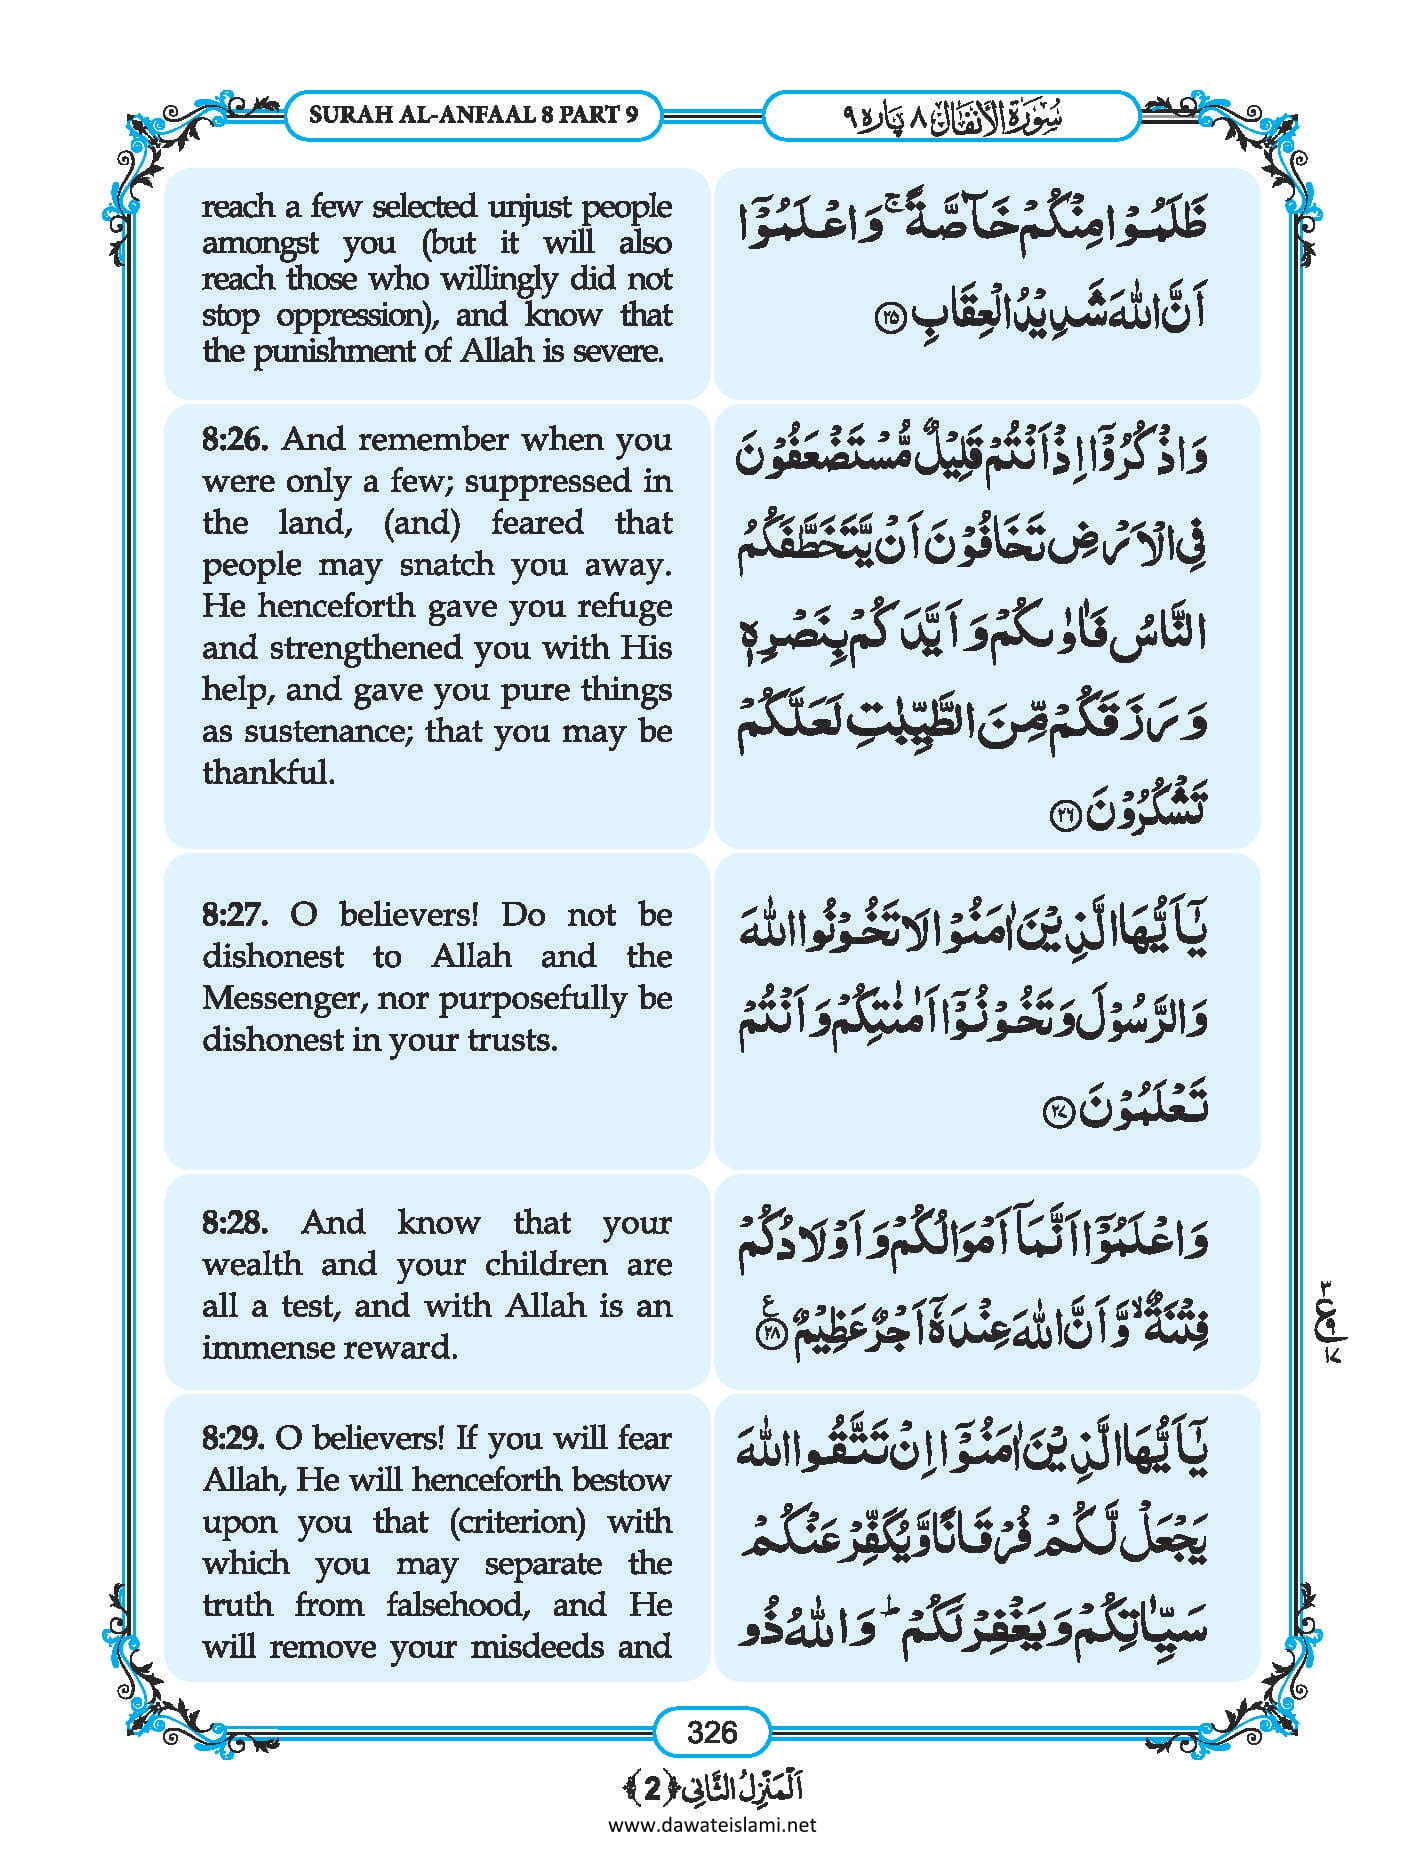 SURAH AL-ANFAAL 8 PART 9
سُوْرَۃُ الْاَنْفَال ۸ پارہ ۹
reach a few selected unjust people
amongst you (but it will also
reach those who willingly did not
stop oppression), and know that
the punishment of Allah is severe.
ظَلَمُوْا مِنْكُمْ خَآصَّةً ۚ وَاعْلَمُوْۤا
اَنَّ اللهَ شَدِیْدُ الْعِقَابِ ﴿۲۵﴾
8:26. And remember when you
were only a few; suppressed in
the land, (and) feared that
people may snatch you away.
He henceforth gave you refuge
and strengthened you with His
help, and gave you pure things
as sustenance; that you may be
thankful.
وَاذْكُرُوْۤا اِذْ اَنْتُمْ قَلِیْلٌ مُّسْتَضْعَفُوْنَ
فِی الْاَرْضِ تَخَافُوْنَ اَنْ یَّتَخَطَّفَكُمُ
النَّاسُ فَاٰوٰىكُمْ وَ اَیَّدَكُمْ بِنَصْرِهٖ
وَ رَزَقَكُمْ مِّنَ الطَّیِّبٰتِ لَعَلَّكُمْ
تَشْكُرُوْنَ ﴿۲۶﴾
8:27. O believers! Do not be
dishonest to Allah and the
Messenger, nor purposefully be
dishonest in your trusts.
یٰۤاَیُّهَا الَّذِیْنَ اٰمَنُوْا لَا تَخُوْنُوا اللهَ
وَالرَّسُوْلَ وَتَخُوْنُوْۤا اَمٰنٰتِكُمْ وَ اَنْتُمْ
تَعْلَمُوْنَ ﴿۲۷﴾
8:28. And know that your
wealth and your children are
all a test, and with Allah is an
immense reward.
وَاعْلَمُوْۤا اَنَّمَاۤ اَمْوَالُكُمْ وَ اَوْلَادُكُمْ
فِتْنَةٌ ۙ وَّ اَنَّ اللهَ عِنْدَهٗۤ اَجْرٌ عَظِیْمٌ ﴿۲۸﴾ ع
۳
ع
۹
۱۷
8:29. O believers! If you will fear
Allah, He will henceforth bestow
upon you that (criterion) with
which you may separate the
truth from falsehood, and He
will remove your misdeeds and
یٰۤاَیُّهَا الَّذِیْنَ اٰمَنُوْۤا اِنْ تَتَّقُوا اللهَ
یَجْعَلْ لَّكُمْ فُرْقَانًا وَّ یُكَفِّرْ عَنْكُمْ
سَیِّاٰتِكُمْ وَ یَغْفِرْ لَكُمْ ؕ وَ اللهُ ذُو
326
اَلْمَنْزِلُ الثَّانِی ﴿2﴾
www.dawateislami.net